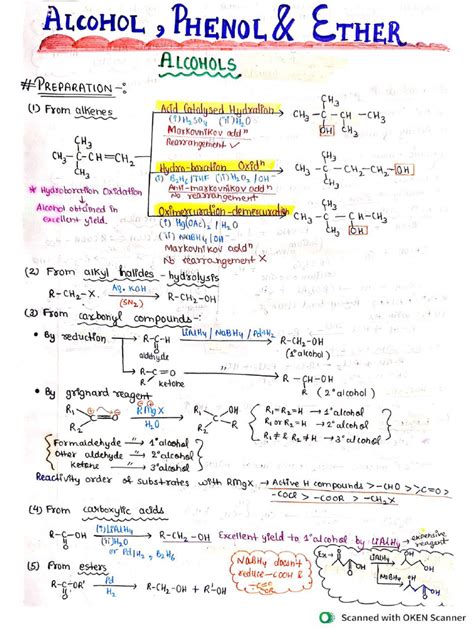 ALCOHOL, PHENOL & ETHER
ALCOHOLS
# PREPARATION -:
(1) From alkenes
Acid Catalysed Hydration
(i) H₂SO₄ (ii) H₂O
Markovnikov addⁿ
Rearrangement ✓
CH₃
CH₃-C-CH=CH₂
CH₃
CH₃
CH₃-C-CH-CH₃
OH CH₃
Hydro-boration Oxidⁿ
(i) B₂H₆/THF (ii) H₂O₂/OH⁻
Anti-markovnikov addⁿ
No rearrangement
CH₃
CH₃-C-CH₂-CH₂-OH
CH₃
* Hydroboration Oxidation
↓
Alcohol obtained in
excellent yield.
Oximercuration-demercuration
(i) Hg(OAc)₂/H₂O
(ii) NaBH₄/OH⁻
Markovnikov addⁿ
No rearrangement ×
CH₃
CH₃-C-CH-CH₃
CH₃ OH
(2) From alkyl halides - hydrolysis
R-CH₂-X Aq. KOH (SN2) → R-CH₂-OH
(3) From carbonyl compounds -:
• By reduction
R-C-H
O
aldehyde
LiAlH₄ / NaBH₄ / Pd+H₂
R-CH₂-OH
(1° alcohol)
R-C=O
R
ketone
R-CH-OH
R (2° alcohol)
• By grignard reagent
R₁ C=O R₂
RMgX
H₂O
R₁ C OH
R₂ R
R₁=R₂=H → 1° alcohol
R₁ or R₂=H → 2° alcohol
R₁ ≠ R₂ ≠ H → 3° alcohol
Formaldehyde → 1° alcohol
Other aldehyde → 2° alcohol
ketone → 3° alcohol
Reactivity order of substrates with RMgX → Active H compounds > -CHO > >C=O >
-COCR > -COOR > -CH₂X
(4) From carboxylic acids
R-C-OH
O
(i) LiAlH₄
(ii) H₂O
or Pd/H₂, B₂H₆
R-CH₂-OH
Excellent yield to 1° alcohol by LiAlH₄ → expensive
reagent
(5) From esters
R-C-OR'
O
Pd
H₂
R-CH₂-OH + R'-OH
NaBH₄ doesn't
reduce -COOH &
Ex →
LiAlH₄
NaBH₄
OH
Scanned with OKEN Scanner